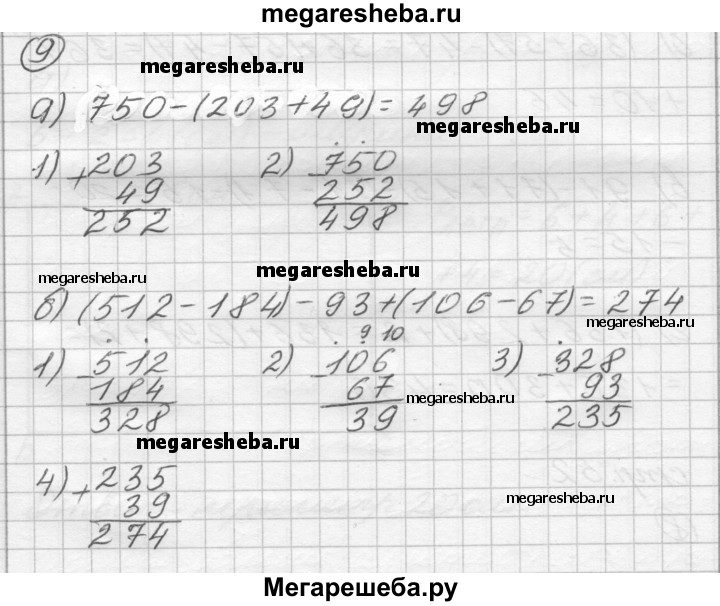 megaresheba.ru
9
megaresheba.ru
а) 750-(203+49)=498
megaresheba.ru
1) +203 2) -750
49 252
252 498
megaresheba.ru megaresheba.ru
б) (512-184)-93+(106-67)=274
megaresheba.ru
9 10
1) -512 2) -106 3) -328
184 67 93
megaresheba.ru
328 39 235
megaresheba.ru
4) +235
39
megaresheba.ru
274
Мегарешеба.ру